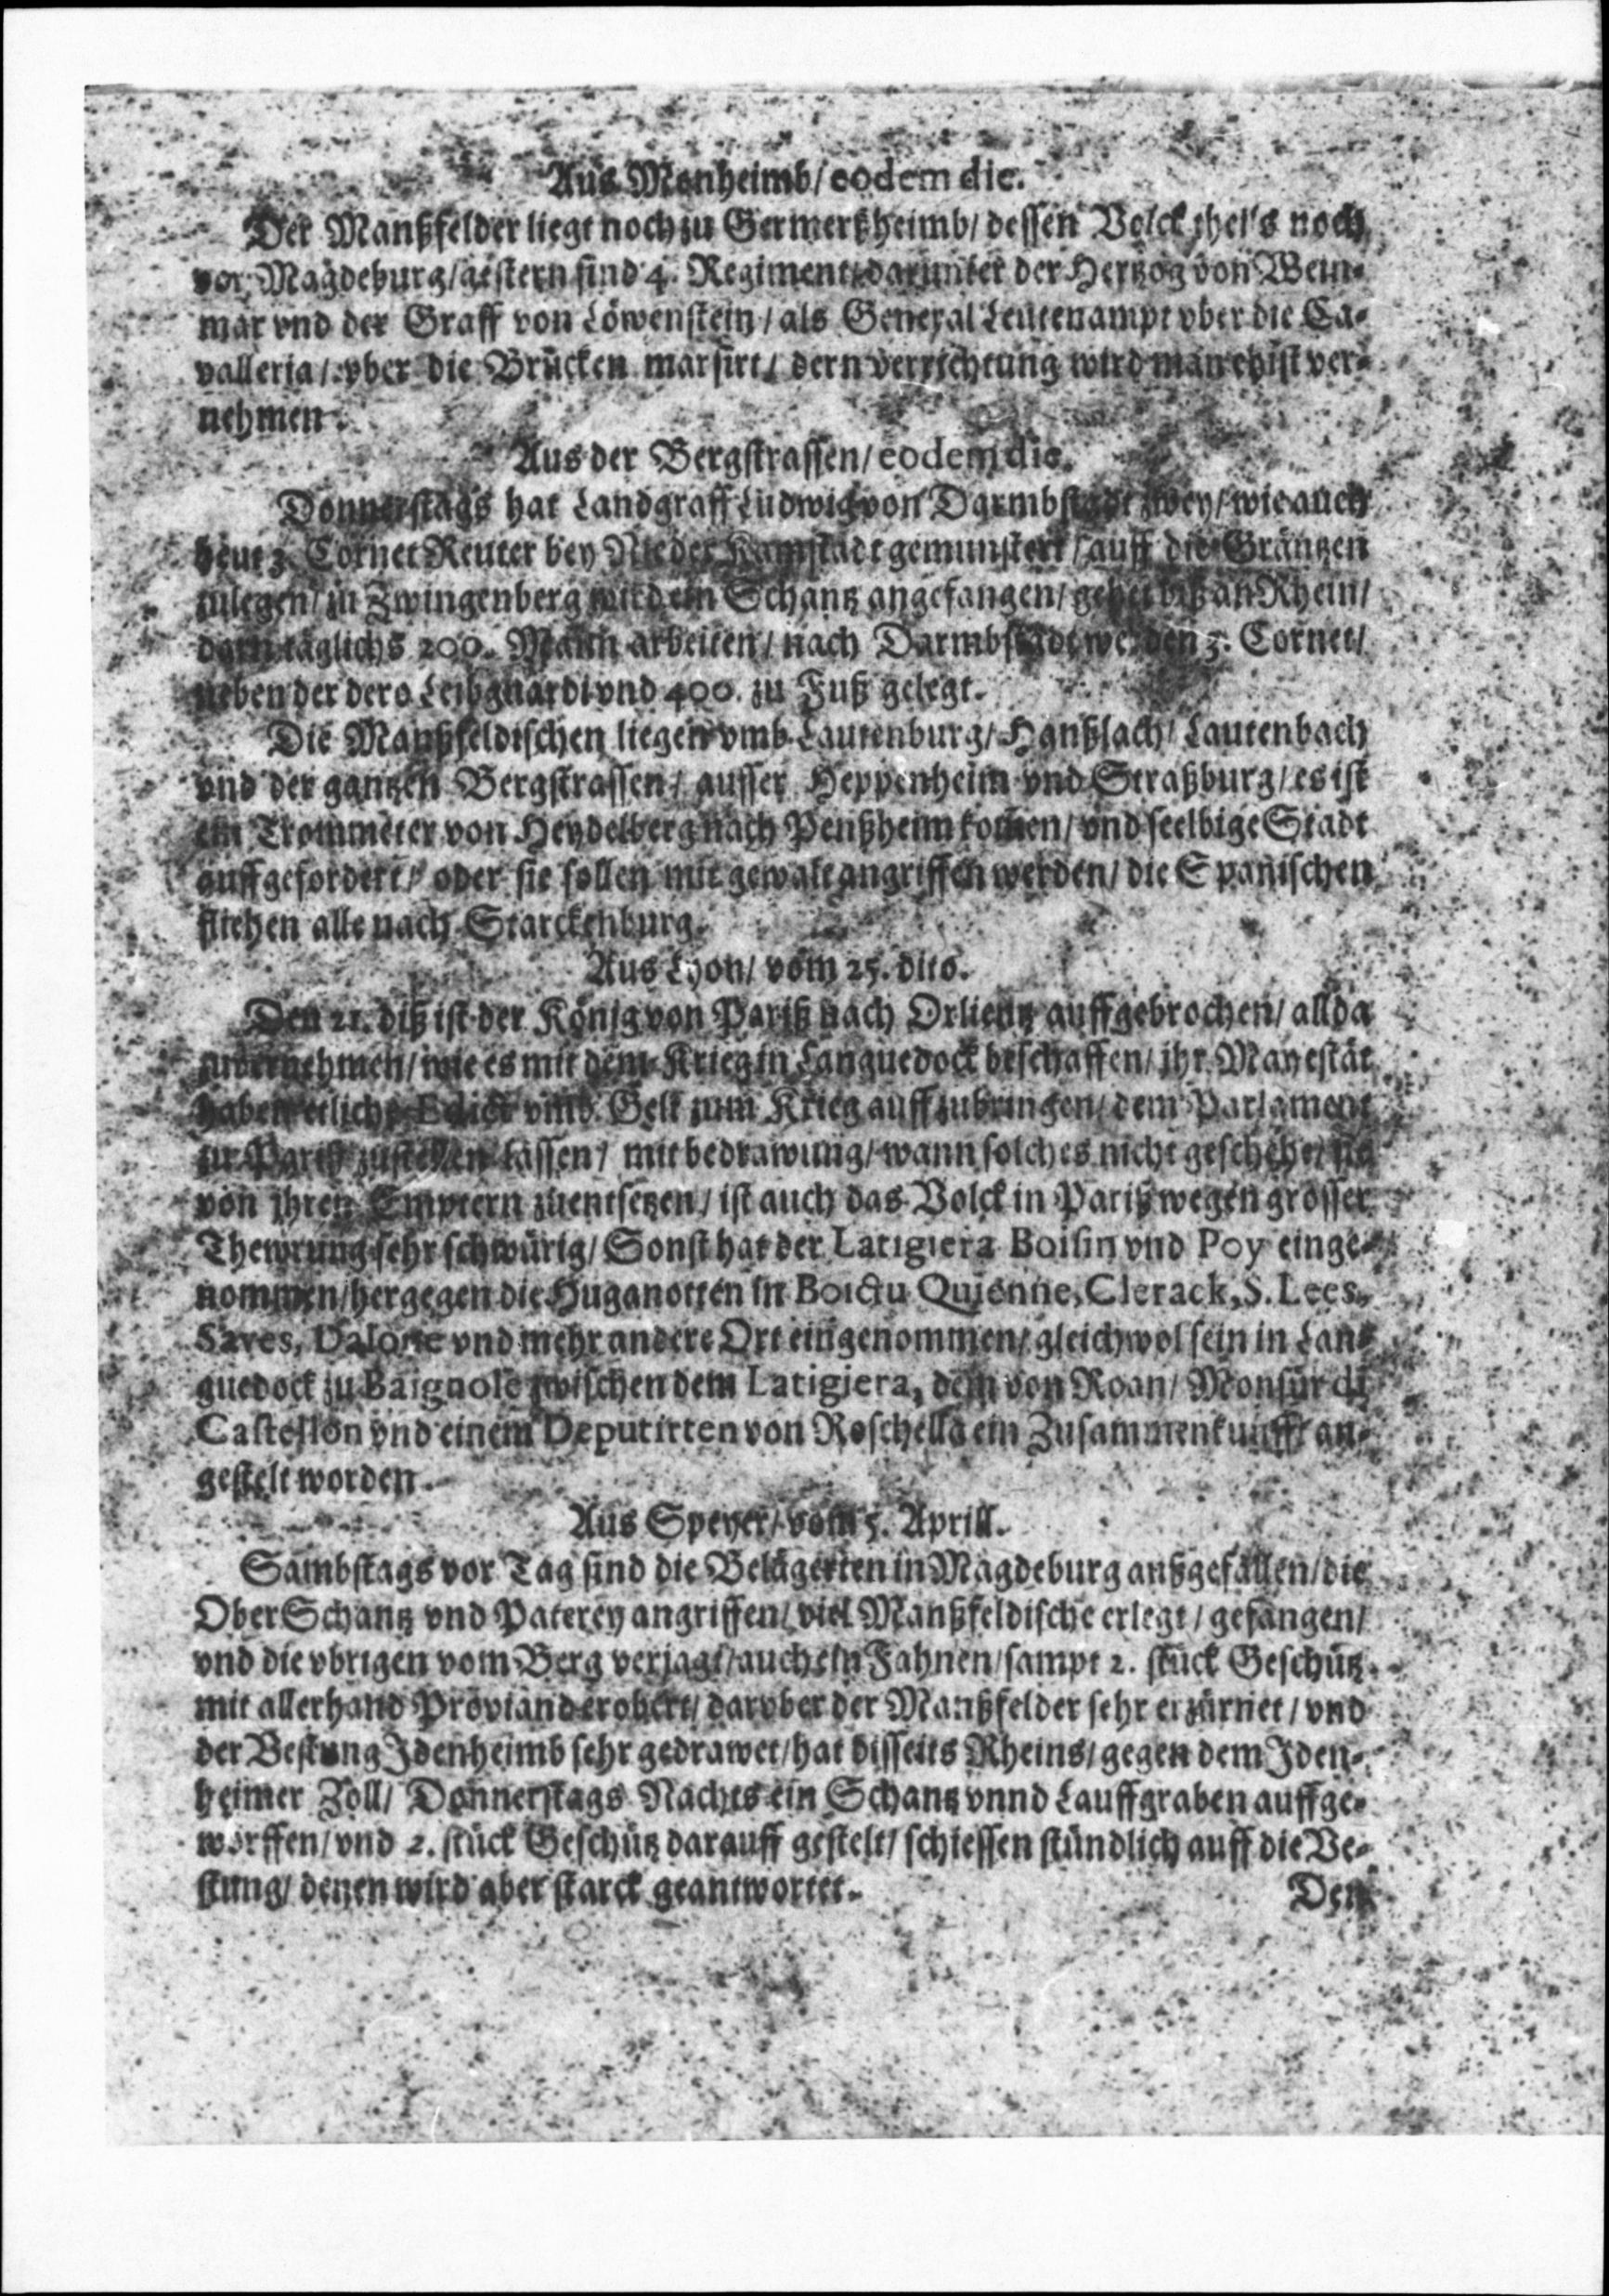 Aus Monheimb/ eodem die.
Der Manßfelder liegt noch zu Germerßheimb/ dessen Volck theils noch
vor Magdeburg/ gestern sind 4. Regiment/ darunter der Hertzog von Wein-
mar vnd der Graff von Löwenstein/ als General Leutenampt vber die Ca-
valleria/ vber die Brücken marsirt/ dern verrichtung wird man ehist ver-
nehmen.
Aus der Bergstrassen/ eodem die.
Donnerstags hat Landgraff Ludwig von Darmbstadt zwey/ wie auch
heut 3. Cornet Reuter bey Nieder gemunstert/ auff die Gräntzen
zulegen/ zu Zwingenberg wird ein Schantz angefangen/ gehet biß an Rhein/
daran täglichs 200. Mann arbeiten/ nach Darmbstadt werden 3. Cornet/
neben der dero Leibguardi vnd 400. zu Fuß gelegt.
Die Manßfeldischen liegen vmb Lautenburg/ Hanßlach/ Lautenbach
vnd der gantzen Bergstrassen/ ausser Heppenheim vnd Straßburg/ es ist
ein Trommeter von Heydelberg nach Penßheim kom̃en/ vnd seelbige Stadt
auffgefordert/ oder sie sollen mit gewalt angriffen werden/ die Spanischen
fliehen alle nach Starckenburg.
Aus Lyon/ vom 25. dito.
Den 21. diß ist der König von Pariß nach Orlientz auffgebrochen/ allda
zuvernehmen/ wie es mit dem Krieg in Languedock beschaffen/ ihr. Mayestät
haben etliche Edict vmb Gelt zum Krieg auffzubringen/ dem Parlament
zu Pariß zustellen lassen/ mit bedrawung/ wann solches nicht geschehe/ sie
von ihren Emptern zuentsetzen/ ist auch das Volck in Pariß wegen grosser
Thewrung sehr schwürig/ Sonst hat der Latigiera Boisin vnd Poy einge-
nommen/ hergegen die Huganotten in Boictu Quienne, Clerack, S. Lees,
Saves, Dalone vnd mehr andere Ort eingenommen/ gleichwol sein in Lan-
guedock zu Baignole zwischen dem Latigiera, dem von Roan/ Monsur di
Castellon vnd einem Deputirten von Roschella ein Zusammenkunfft an-
gestelt worden.
Aus Speyer/ vom 5. Aprill.
Sambstags vor Tag sind die Belägerten in Magdeburg außgefallen/ die
Ober Schantz vnd Paterey angriffen/ viel Manßfeldische erlegt/ gefangen/
vnd die vbrigen vom Berg verjagt/ auch ein Fahnen/ sampt 2. stück Geschütz
mit allerhand Proviand erobert/ darvber der Manßfelder sehr erzürnet/ vnd
der Vestung Idenheimb sehr gedrawet/ hat disseits Rheins/ gegen dem Iden-
heimer Zoll/ Donnerstags Nachts ein Schantz vnnd Lauffgraben auffge-
worffen/ vnd 2. stück Geschütz darauff gestelt/ schiessen stündlich auff die Ve-
stung/ denen wird aber starck geantwortet.
Den